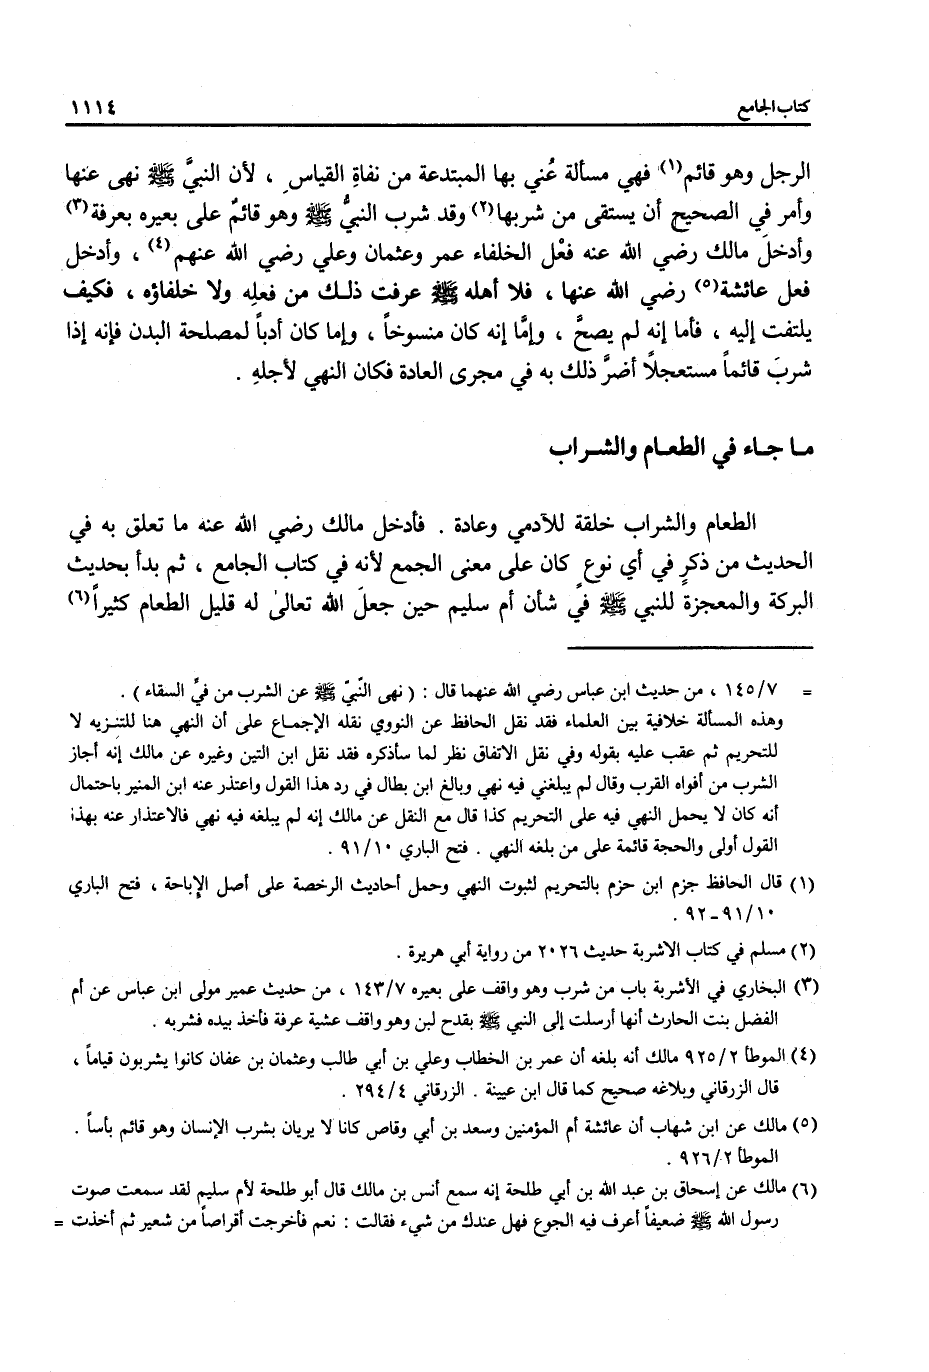 كتاب الجامع ١١١٤
الرجل وهو قائم(١) فهي مسألة عُني بها المبتدعة من نفاةِ القياس ، لأن النبيَّ ﷺ نهى عنها
وأمر في الصحيح أن يستقى من شربها(٢) وقد شرب النبيُّ ﷺ وهو قائمٌ على بعيره بعرفة(٣)
وأدخلَ مالك رضي الله عنه فعْل الخلفاء عمر وعثمان وعلي رضي الله عنهم(٤) ، وأدخل
فعل عائشة(٥) رضي الله عنها ، فلا أهله ﷺ عرفت ذلك من فعلِه ولا خلفاؤه ، فكيف
يلتفت إليه ، فأما إنه لم يصحَّ ، وإمَّا إنه كان منسوخاً ، وإما كان أدباً لمصلحة البدن فإنه إذا
شربَ قائماً مستعجلاً أضرَّ ذلك به في مجرى العادة فكان النهي لأجلهِ .
ما جاء في الطعام والشراب
الطعام والشراب خلقة للآدمي وعادة . فأدخل مالك رضي الله عنه ما تعلق به في
الحديث من ذكرٍ في أي نوعٍ كان على معنى الجمع لأنه في كتاب الجامع ، ثم بدأ بحديث
البركة والمعجزة للنبي ﷺ في شأن أم سليم حين جعلَ الله تعالىٰ له قليل الطعام كثيراً(٦)
= ١٤٥/٧ ، من حديث ابن عباس رضي الله عنهما قال : ( نهى النّبيّ ﷺ عن الشرب من فيِّ السقاء ) .
وهذه المسألة خلافية بين العلماء فقد نقل الحافظ عن النووي نقله الإجماع على أن النهي هنا للتنزيه لا
للتحريم ثم عقب عليه بقوله وفي نقل الاتفاق نظر لما سأذكره فقد نقل ابن التين وغيره عن مالك إنه أجاز
الشرب من أفواه القرب وقال لم يبلغني فيه نهي وبالغ ابن بطال في رد هذا القول واعتذر عنه ابن المنير باحتمال
أنه كان لا يحمل النهي فيه على التحريم كذا قال مع النقل عن مالك إنه لم يبلغه فيه نهي فالاعتذار عنه بهذا
القول أولى والحجة قائمة على من بلغه النهي . فتح الباري ٩١/١٠ .
(١) قال الحافظ جزم ابن حزم بالتحريم لثبوت النهي وحمل أحاديث الرخصة على أصل الإباحة ، فتح الباري
٩١/١٠-٩٢ .
(٢) مسلم في كتاب الاشربة حديث ٢٠٢٦ من رواية أبي هريرة .
(٣) البخاري في الأشربة باب من شرب وهو واقف على بعيره ١٤٣/٧ ، من حديث عمير مولى ابن عباس عن أم
الفضل بنت الحارث أنها أرسلت إلى النبي ﷺ بقدح لبن وهو واقف عشية عرفة فأخذ بيده فشربه .
(٤) الموطأ ٩٢٥/٢ مالك أنه بلغه أن عمر بن الخطاب وعلي بن أبي طالب وعثمان بن عفان كانوا يشربون قياماً ،
قال الزرقاني وبلاغه صحيح كما قال ابن عيينة . الزرقاني ٢٩٤/٤ .
(٥) مالك عن ابن شهاب أن عائشة أم المؤمنين وسعد بن أبي وقاص كانا لا يريان بشرب الإنسان وهو قائم بأساً .
الموطأ ٩٢٦/٢ .
(٦) مالك عن إسحاق بن عبد الله بن أبي طلحة إنه سمع أنس بن مالك قال أبو طلحة لأم سليم لقد سمعت صوت
رسول الله ﷺ ضعيفاً أعرف فيه الجوع فهل عندك من شيء فقالت : نعم فأخرجت أقراصاً من شعير ثم أخذت =